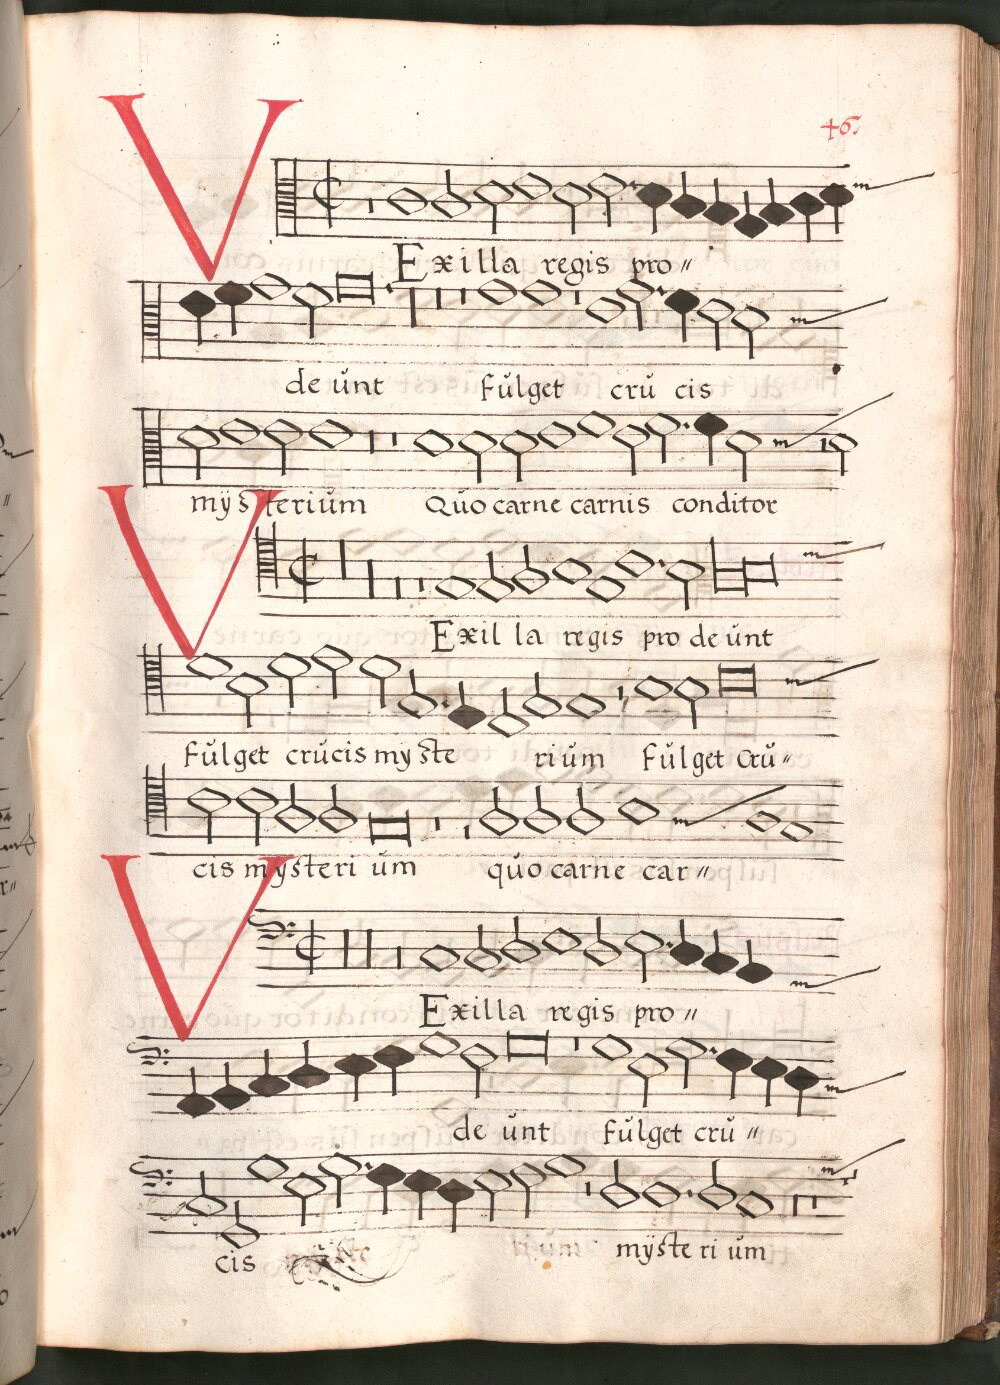 46.
VExilla regis pro〃
de unt fulget cru cis
mÿsterium Quo carne carnis conditor
VExil la regis pro de unt
fulget crucis myste rium fulget cru〃
cis mysteri um quo carne car〃
VExilla regis pro〃
de unt fulget cru〃
cis mÿste ri um